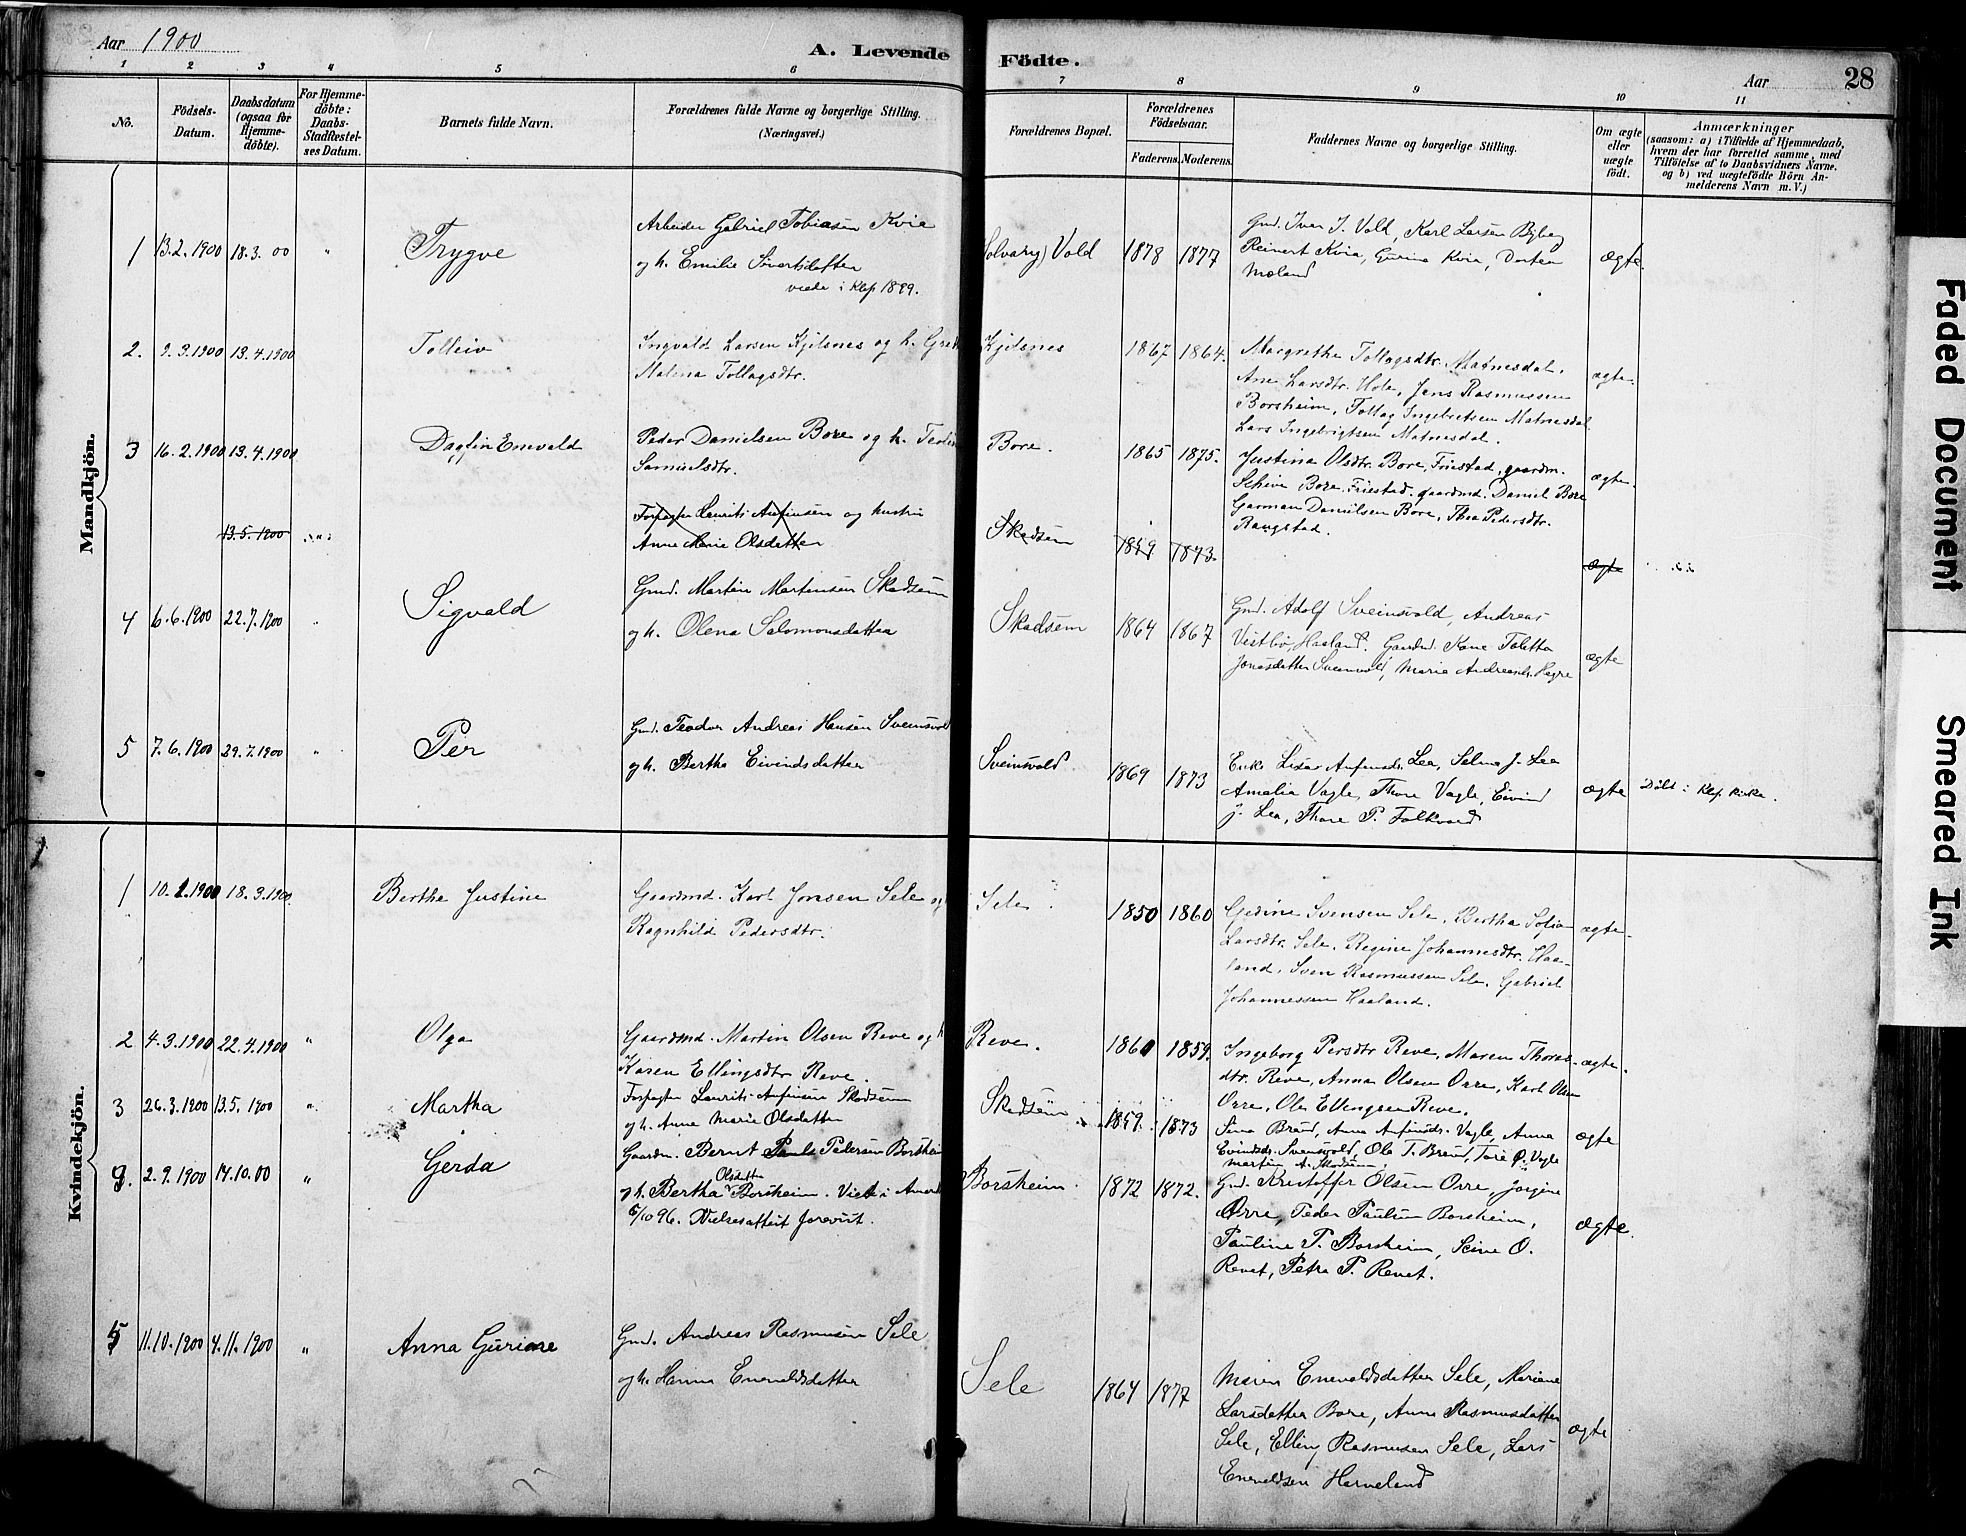 Aar 1900
A. Levende Födte.
Aar 28
1 2 3 4 5 6 7 8 9 10 11
No.
Födsels-Datum.
Daabsdatum (ogsaa for Hjemmedöbte).
For Hjemmedöbte: Daabs-Stadfæstelses Datum.
Barnets fulde Navn.
Forældrenes fulde Navne og borgerlige Stilling.
(Næringsvei.)
Forældrenes Bopæl.
Forældrenes Födselsaar.
Faderens. Moderens.
Faddernes Navne og borgerlige Stilling.
Om ægte eller uægte födt.
Anmærkninger
(saasom: a) i Tilfælde af Hjemmedaab,
hvem der har forrettet samme, med
Tilföielse af to Daabsvidners Navne.
og b) ved uægtefödte Börn Anmelderens Navn m. V.)
Mandkjön.
1 13.2.1900 18.3.00 " Trygve
Arbeider Gabriel Tobiasen Kvia
og h. Emilie Sivertsdatter
viede i Klep 1899.
Vold 1878 1877
Gmd. Iver I. Vold, Karl Larsen Byberg
Reinert Kvia, Gurina Kvia, Dortea
Mæland
ægte.
2. 9.3.1900 13.4.1900 Tolleiv
Ingvald Larsen Kjilsnes og h.
Malena Tollagsdtr.
Kjilsnes 1867 1864.
Margrethe Tollagsdtr. Matnesdal.
Ane Larsdtr. Hole, Jens Rasmussen
Borsheim, Tollag Ingebretsen Matnesdal
Lars Ingebrigtsen Matnesdal.
ægte.
3 16.2.1900 13.4.1900 Dagfin Enevald
Peder Danielsen Bore og h.
Samuelsdtr.
Bore. 1865 1875.
Justina Olsdtr. Bore, Friestad, gaardm.
Bore. Friestad. gaardmd. Daniel Bore
Garman Danielsen Bore, Thea Pedersdtr.
Rangstad.
ægte.
13.5.1900
Forpagter Laurits Anfinsen og hustru
Anne Marie Olsdatter
Skadsem 1859 1873.
ægte
4 6.6.1900 22.7.1900 " Sigvald
Gmd. Martin Martinsen Skadsem
og h. Olena Salomonsdatter
Skadsem 1864 1867
Gmd. Adolf Sveinsvold, Andreas
Vestbö, Haaland. Gaardmd. Kone Toletta
Jonasdatter Sveinsvold, Maria Andreasdtr. Hegre
ægte
5 7.6.1900 29.7.1900 " Per
Gmd. Teodor Andreas Hansen Sveinsvold
og h. Bertha Eivindsdatter
Sveinsvold. 1869 1873
Enke Lisar Anfinsdtr. Lea, Selma J. Lea
Amalia Vagle, Thore Vagle, Eivind
J. Lea, Thore P. Folkvord
ægte
Döbt i Klep Kirke.
Kvindekjön.
1 10.2.1900 18.3.1900. Berthe Justine
Gaardmd. Karl Jonsen Sele og
Ragnhild Pedersdtr.
Sele. 1850 1860
Gedine Svensen Sele, Bertha Sofia
Larsdtr. Sele, Regine Johannesdtr. Haaland,
Sven Rasmussen Sele, Gabriel
Johannessen Haaland.
ægte.
2 4.3.1900 22.4.1900 " Olga
Gaardmd. Martin Olsen Reve og h
Karen Ellingsdtr Reve.
Reve. 1860 1859.
Ingeborg Persdtr Reve, Maren Thoresdtr.
Reve, Anna Olsen Orre, Karl Olsen
Orre, Ole Ellingsen Reve.
ægte.
3 26.3.1900 13.5.1900 " Martha
Forpagter Laurits Anfinsen Skadsem
og h. Anne Marie Olsdatter
Skadsem 1859. 1873
Sina Braud, Anna Anfinsdtr. Vagle, Anna
Eivindsdtr. Svensvold, Ole T. Braud, Tore O. Vagle
Martin A. Skadsem.
ægte
4. 2.9.1900 14.10.00 " Gerda
Gaardm. Bernt Pauls Pedersen Borsheim
og h. Bertha Olsdatter Borsheim. Viet i
5/10 96. Vielsesattest forevist.
Borsheim. 1872 1872.
Gmd. Kristoffer Olsen Orre, Jorgine
Orre, Peder Paulsen Borsheim,
Pauline P. Borsheim, Seine O.
Revet, Petra P. Revet.
ægte.
5 11.10.1900 4.11.1900 " Anna Gurine
Gmd. Andreas Rasmusen Sele
og h. Hanna Enevaldsdatter
Sele 1864 1877
Maren Enevaldsdatter Sele, Mariane
Larsdatter Bore, Anna Rasmusdatter
Sele, Elling Rasmusen Sele, Lars
Enevaldsen Harveland
ægte
Faded Document
Smeared Ink